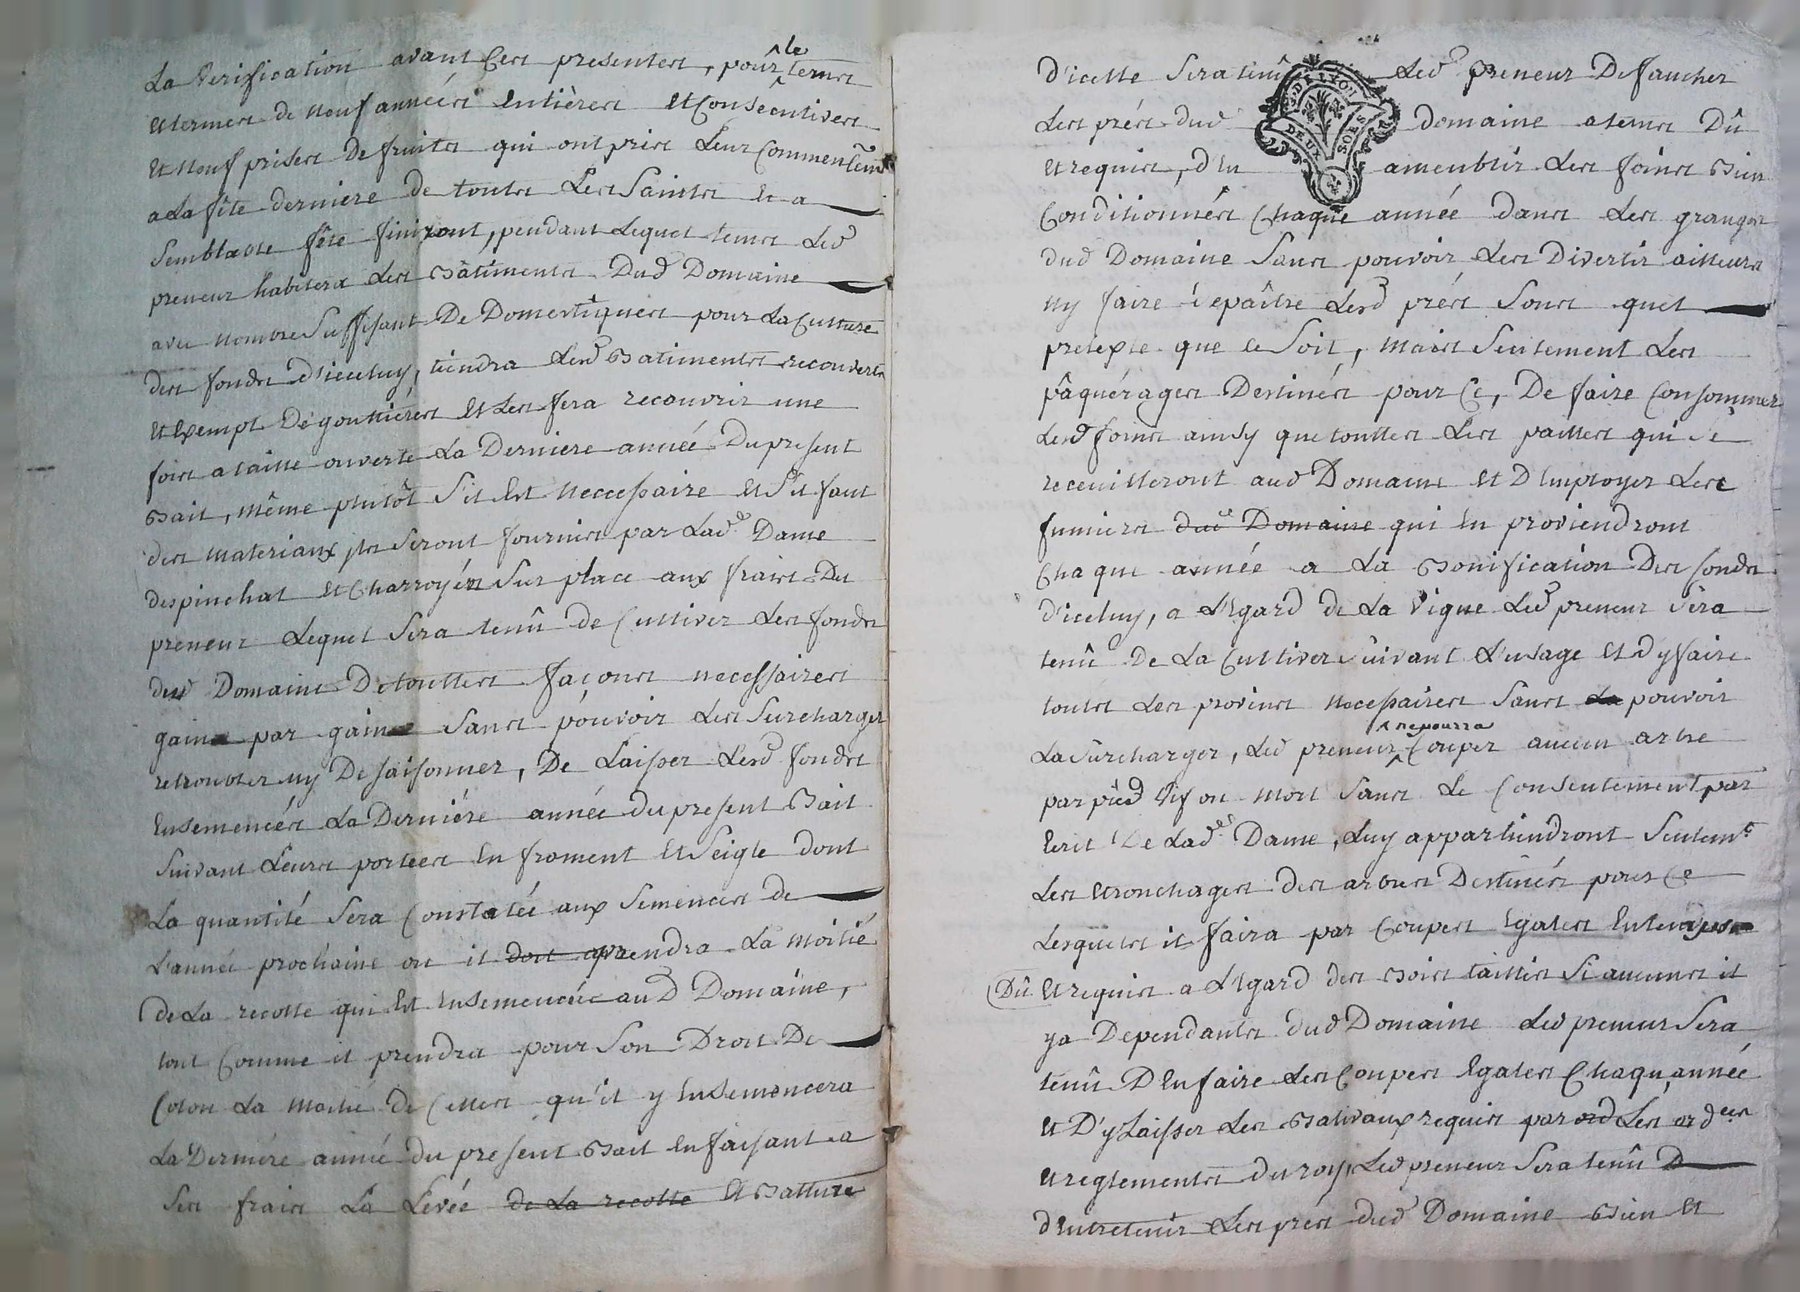 La Verification avant Ces presentes, pour le tems
et termes de neuf années entières et Consécutives
et neuf prises de fruits qui ont pris Leur Commencemt
a La fête derniere de toutes Les Saints et a
semblable fête finiront, pendant Lequel tems Led
preneur habitera Les Bâtiments Dud Domaine
avec nombre Suffisant De Domestiques pour La Culture
des fonds d'iceluy, tiendra Lesd Batiments recouverts
et exempt De gouttières et Les fera recouvrir une
fois a taille ouverte La Derniere année Du present
Bail, même plutôt s'il Est neccessaire et s'il faut
des materiaux, ils seront fournis par Lade Dame
Despinchal et Charroyés Sur place aux frais Du
preneur Lequel Sera tenû de Cultiver Les fonds
dud Domaine De touttes façons necessaires
gain par gain Sans pouvoir Les Surcharger
retroubler ny Desaisonner, De Laisser Lesd fonds
Ensemencés La Derniére année du present Bail
Suivant Leurs portées en froment et Seigle dont
La quantité Sera Constatée aux Semences de
L'année prochaine ou il doit qu prendra La moitié
de La recolte qui Est Ensemencée aud Domaine,
tout Comme il prendra pour Son Droit De
Colon La moitié de Celles qu'il y Ensemencera
La Derniére année du present Bail en faisant a
Ses frais La Levée de La recolte et Batture
d'icelle Sera tenû Led preneur De faucher
Les prés dud domaine a tems Dû
et requis, d'En ameublir Les foins Bien
Conditionnés Chaque année dans Les granges
dud Domaine Sans pouvoir Les Divertir ailleurs
ny faire repaître Lesd prés Sous quel
pretexte que ce Soit, mais Seulement Les
pâquérages Destinés pour Ce, De faire Consommer
Lesd foins ainsy que touttes Les pailles qui Se
receuilleront aud Domaine et D'Employer Les
fumiers dud Domaine qui En proviendront
Chaque année a La Bonification Des fonds
d'iceluy, a L'Egard de La Vigne Led preneur Sera
tenû De La Cultiver Suivant L'usage et d'y faire
toutes Les provins necessaires Sans La pouvoir
La Surcharger, Led preneur ne pourra Couper aucun arbre
par pied Vif ou mort Sans Le Consentement par
Ecrit De Lade Dame, Luy appartiendront Seulemt
Les Etronchages des arbres Destinés pour Ce
Lesquels il faira par Coupes Egales En tems
Dû et requis a L'Egard des Bois taillis Si aucuns il
ya Dependants dud Domaine Led preneur Sera
tenû D'En faire Les Coupes Egales Chaqu'année
et D'y Laisser Les Balivaux requis par ord Les ordces
et reglements du roy, Led preneur Sera tenû D
d'Entretenir Les prés dud Domaine Bien et
G. DE LYON
DEUX SOLS